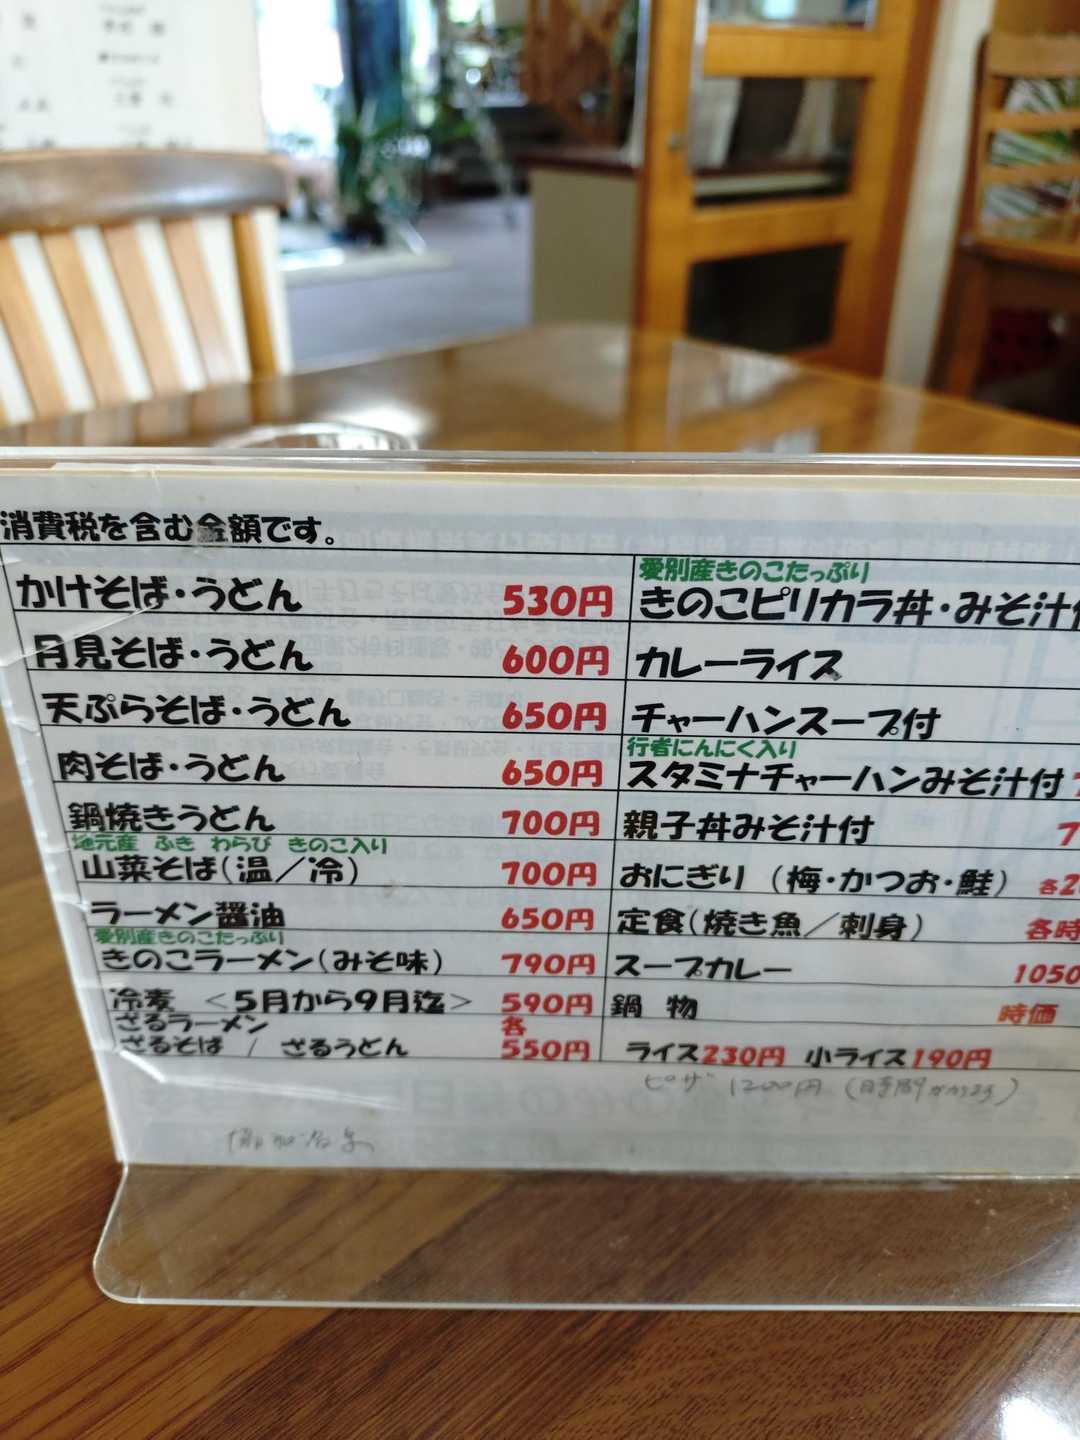 消費税を含む金額です。
かけそば・うどん 530円
月見そば・うどん 600円
天ぷらそば・うどん 650円
肉そば・うどん 650円
鍋焼きうどん 700円
地元産 ふき わらび きのこ入り
山菜そば(温／冷) 700円
ラーメン醤油 650円
愛別産きのこたっぷり
きのこラーメン(みそ味) 790円
冷麦 <5月から9月迄> 590円
ざるラーメン 各
ざるそば / ざるうどん 550円
愛別産きのこたっぷり
きのこピリカラ丼・みそ汁
カレーライス
チャーハンスープ付
行者にんにく入り
スタミナチャーハンみそ汁付
親子丼みそ汁付
おにぎり (梅・かつお・鮭) 各
定食(焼き魚／刺身) 各時
スープカレー 1050
鍋 物 時価
ライス230円 小ライス190円
ピザ 1200円